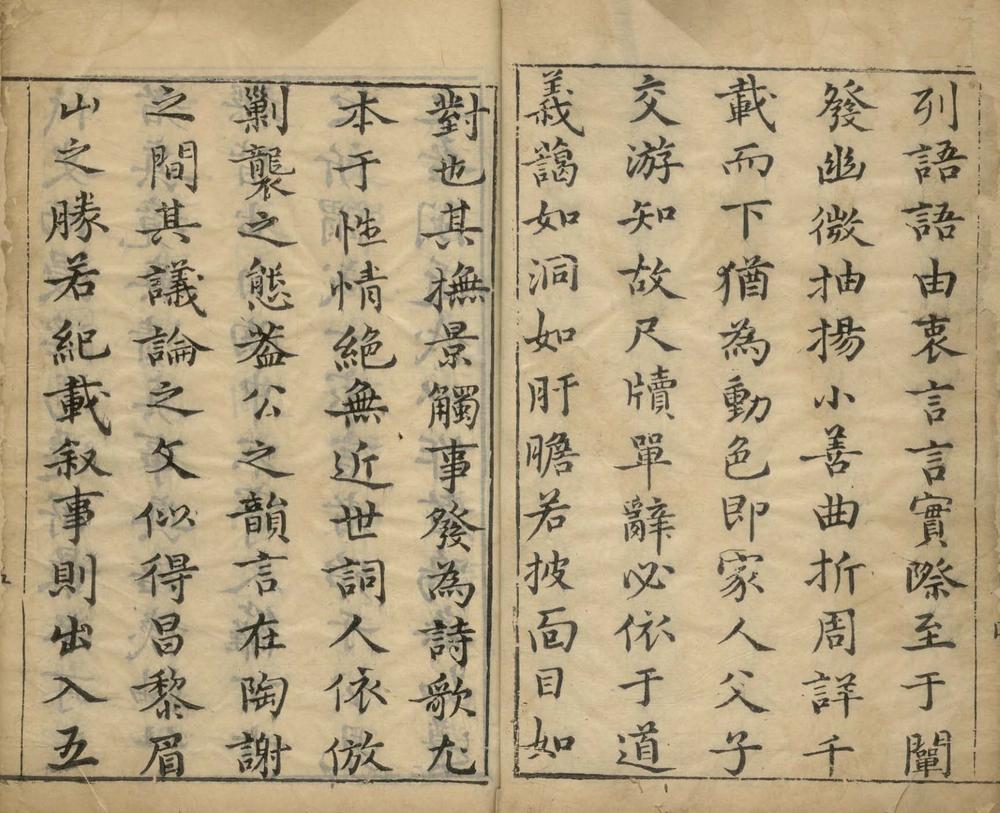 列語語由衷言言實際至于闡
發幽微抽揚小善曲折周詳千
載而下猶為動色即家人父子
交游知故尺牘單辭必依于道
義藹如洞如肝膽若披面目如
對也其撫景觸事發為詩歌尤
本于性情絕無近世詞人依倣
剿襲之態葢公之韻言在陶謝
之間其議論之文似得昌黎眉
山之勝若紀載敘事則出入五